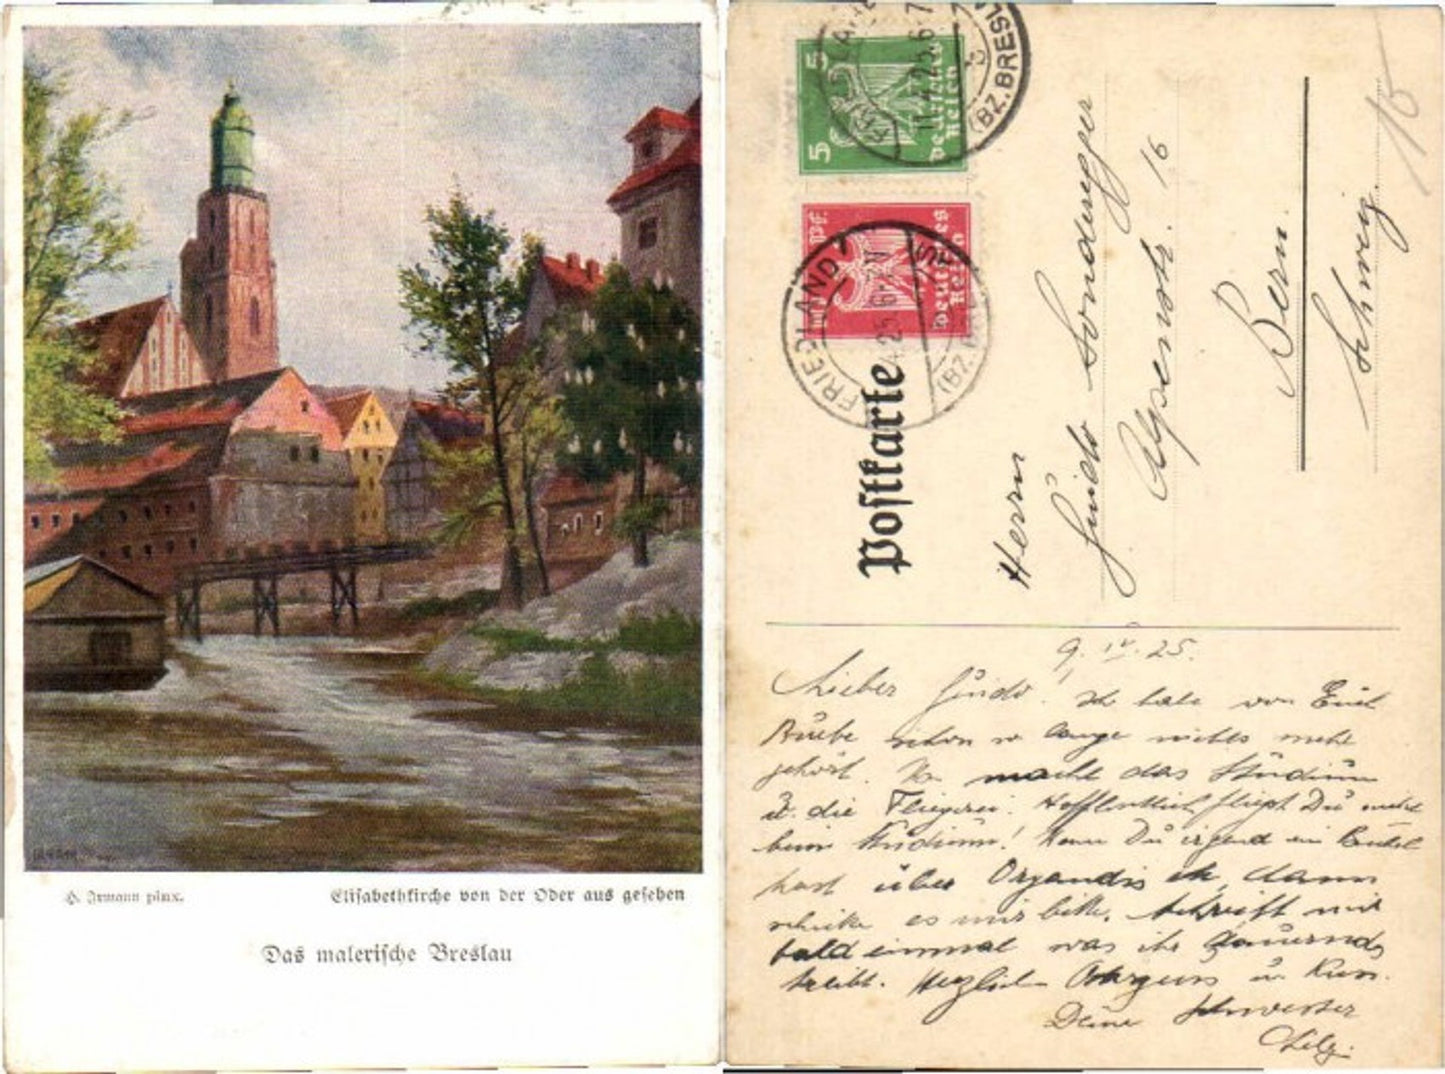 H. Irmann pinx.
Elisabethkirche von der Oder aus gesehen
Das malerische Breslau
5
5
Deutsches
Reich
(BZ. BRESL
11.4.25. 6-7
Pf.
Deutsches
Reich
FRIEDLAND
(BZ.
Postkarte
15
Herrn
Guido Sonderegger
Alpenstr. 16
Bern.
Schweiz.
9. IV. 25.
Lieber Guido! Ich habe von Euch
schon so lange nichts mehr
gehört. macht das Studium
u. die Fliegerei. Hoffentlich fliegst Du nicht
beim Studium! Wenn Du irgend ein
hast über Organdis dann
schicke es mir bitte. Schreibt mir
bald einmal was ihr dauernd
treibt. Herzlichen u. Kuss.
Deine Schwester